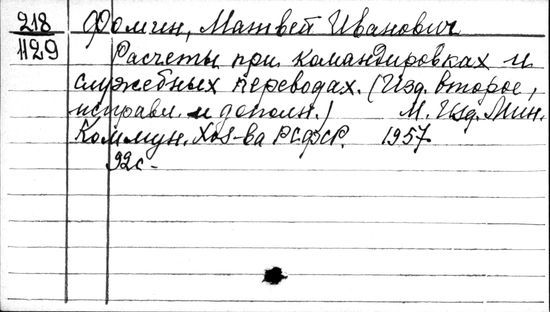 218 Фомин, Матвей Иванович
1129 Расчеты при командировках и
служебных переводах. (Изд. второе,
исправл. и дополн.) М. Изд. Мин.
Коммун. Хоз-ва РСФСР. 1957
92с.